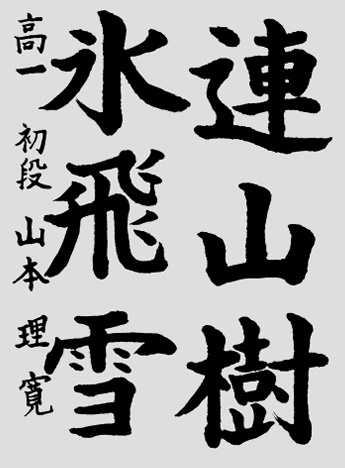 連山樹
氷飛雪
高一 初段 山本 理寛